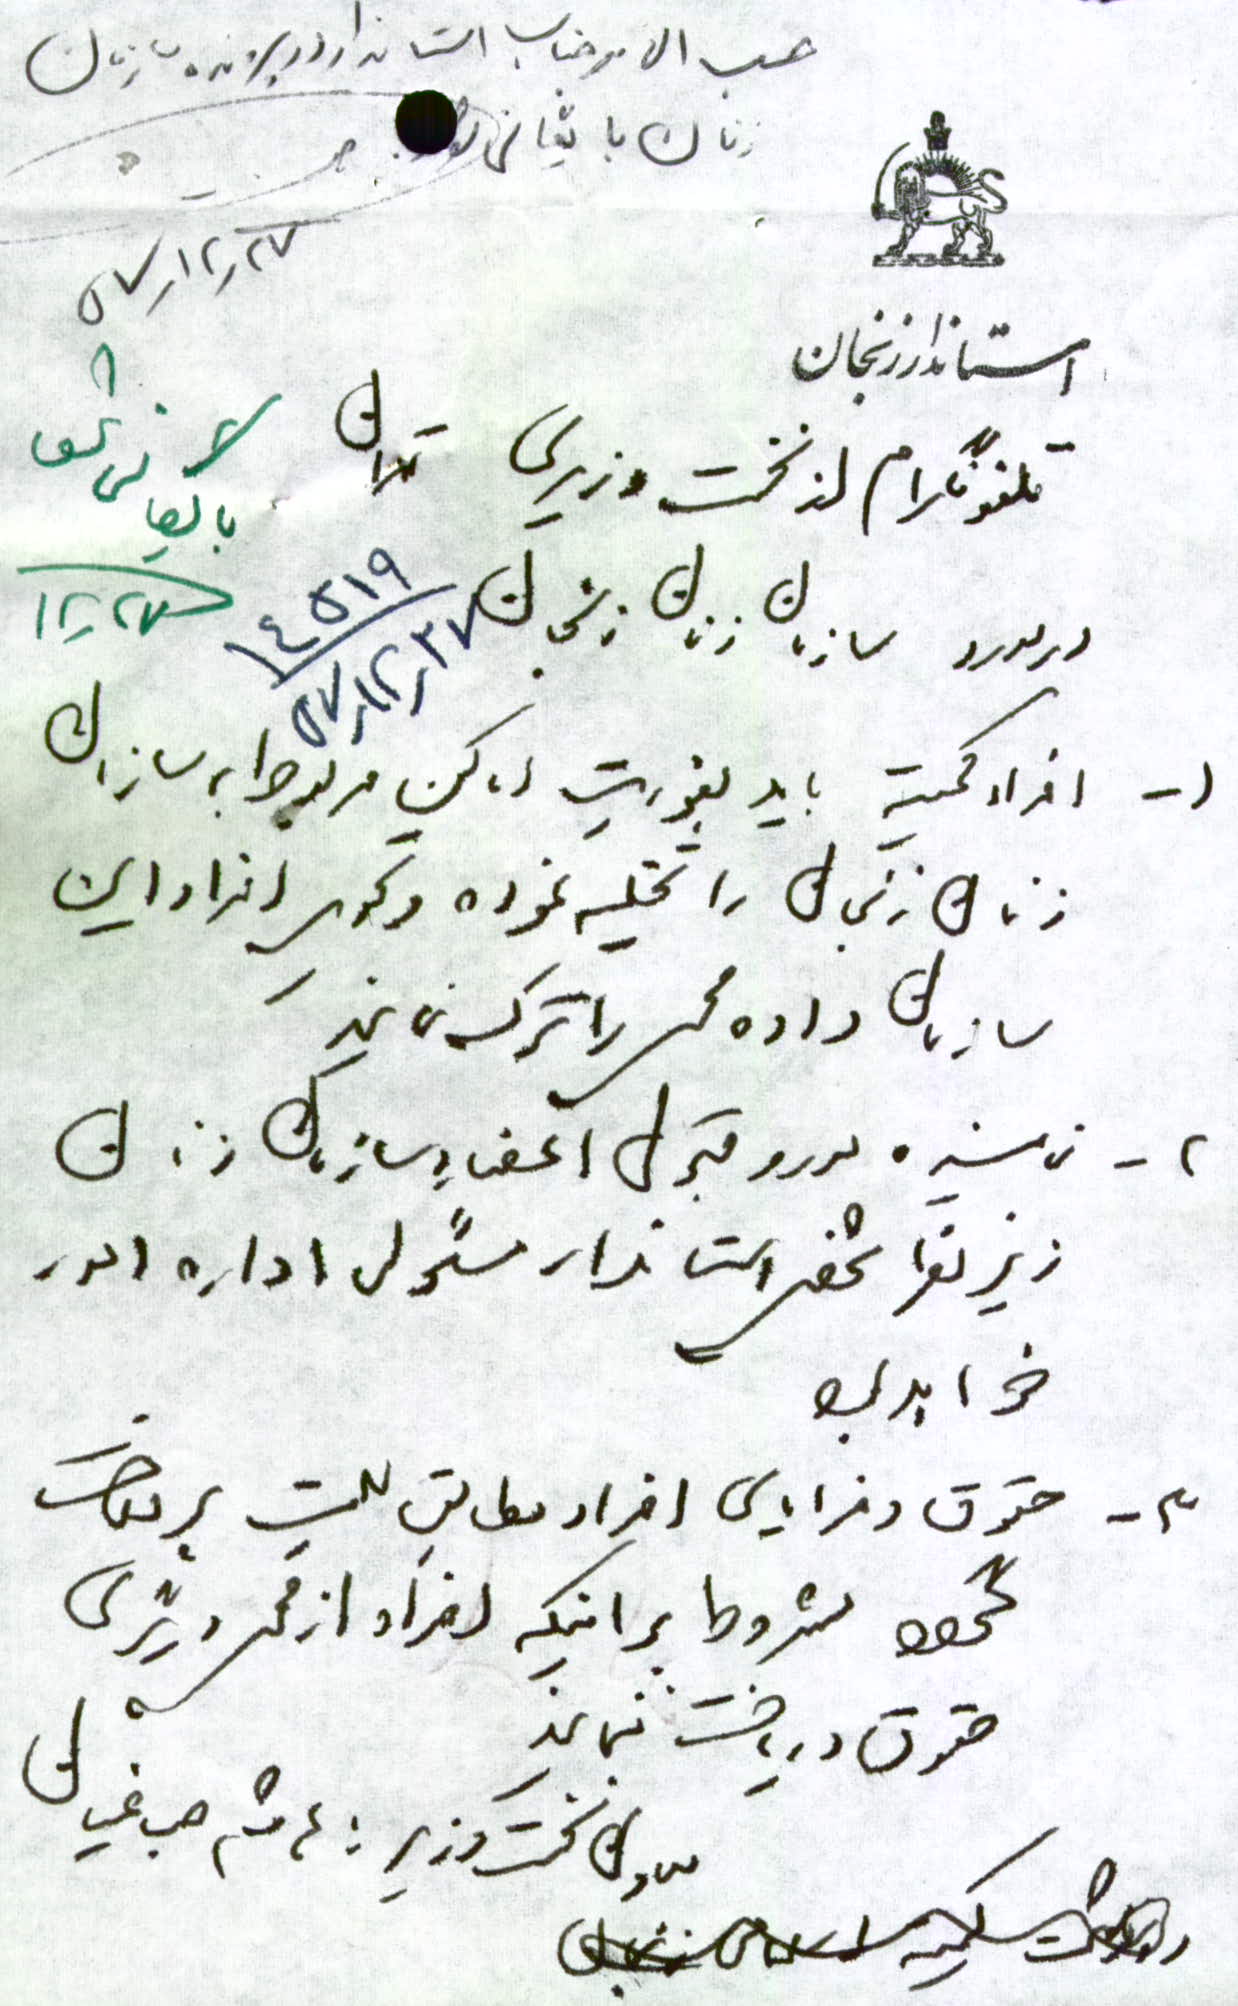 حسب الامر جناب استاندار در پرونده سازمان
زنان بایگانی شود.
۵۷/۱۲/۲۷
استاندار زنجان
تلفونگرام از نخست وزیری تهران
بایگانی شود
۱۲/۲۷
۱۴۵۱۹
۵۷/۱۲/۲۷
در مورد سازمان زنان زنجان
۱- افراد کمیته باید بفوریت اماکن مربوط به سازمان
زنان زنجان را تخلیه نموده و تحویل افراد این
سازمان داده محل را ترک نمایند
۲- نماینده مورد قبول اعضاء سازمان زنان
زیر نظر شخص استاندار مسئول اداره امور
خواهد بود
۳- حقوق و مزایای افراد مطابق لیست پرداخت
گردد مشروط بر اینکه افراد از محل دیگری
حقوق دریافت ننمایند
معاون نخست وزیر: هاشم صباغیان
رونوشت کمیته اسلامی زنجان